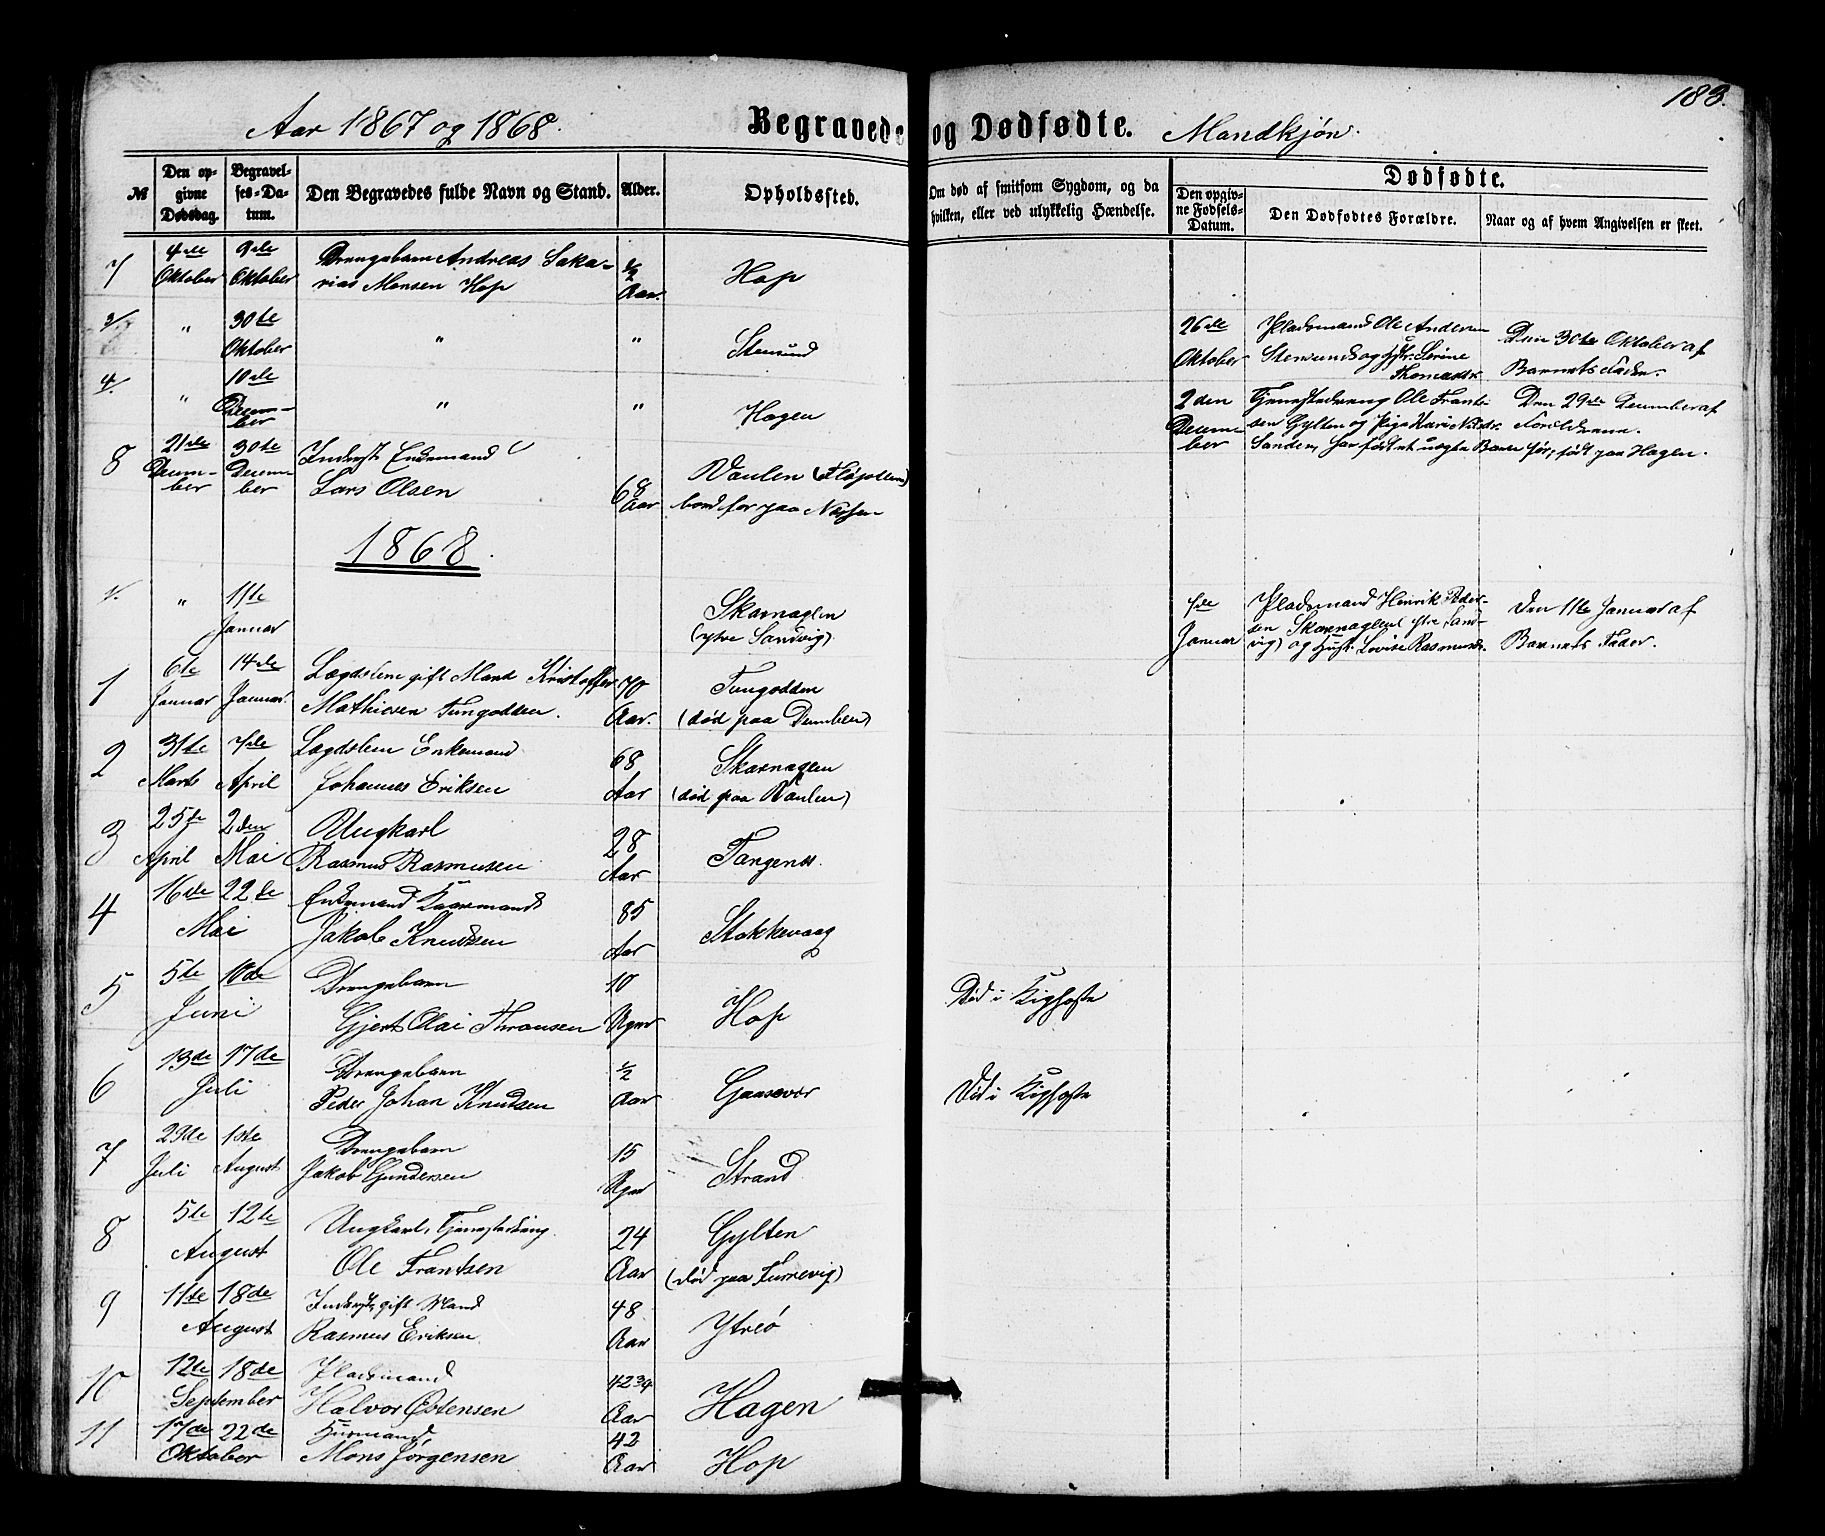 183.
Aar 1867 og 1868.
Begravede og Dødfødte. Mandkjøn.
№
Den opgivne Dødsdag.
Begravelses-Datum.
Den Begravedes fulde Navn og Stand.
Alder.
Opholdssted.
Om død af smitsom Sygdom, og da hvilken, eller ved ulykkelig Hændelse.
Dødfødte.
Den opgivne Fødsels-Datum.
Den Dødfødtes Forældre.
Naar og af hvem Angivelsen er skeet.
7 4de Oktober 9de Oktober Drengebarn Andreas Saka-
rias Monsen Hop ½ Aar. Hop
3/ " 30te Oktober " " Stensund
26de Oktober Pladsmand Ole Andersen
Stensund og Hustr. Serine
Thomasdr.
Den 30te Oktober af
Barnets Fader.
4/. " 10de Decem-
ber " " Hagen
2den Decem-
ber Tjenestedreng Ole Frant-
sen Gylten og Pige Kari Nilsdr.
Sanden, har født et uægte Barn før, født paa Hagen.
Den 29de December af
Forældrene.
8 21de Decem-
ber 30te Decem-
ber Inderst, Enkemand
Lars Olsen 68 Aar Vaulen (Fløjolmen)
boed før paa Næssen
1868.
1/. " 11te Januar Skarnaglen
(ytre Sandvig)
7de Januar Pladsmand Henrik Peder-
sen Skarnaglen (ytre Sand-
vig) og Hust. Lovise Rasmusdr.
Den 11te Januar af
Barnets Fader.
1 6te Januar 14de Januar. Lægdslem gift Mand Kristoffer
Mathiesen Tungodden. 70 Aar. Tungodden
(død paa Dumben)
2 31te Marts 7de April Lægdslem Enkemand
Johannes Eriksen 68 Aar Skarnaglen
(død paa Vaulen)
3 25de April 2den Mai Ungkarl
Rasmus Rasmusen 28 Aar Tangenes.
4 16de 22de Mai Enkemand Kaarmand
Jakob Knudsen 85 Aar Stokkevaag
5 5te 10de Juni Drengebarn
Gjert Olai Thronsen 10 Uger Hop Død i Kighoste
6 13de 17de Juli Drengebarn
Peder Johan Knudsen ½ Aar Gaasevær Død i Kighoste
7 29de Juli 1ste August Drengebarn
Jakob Gundersen 15 Uger Strand
8 5te 12te August Ungkarl, Tjenestedreng
Ole Frantsen 24 Aar Gylten
(død paa Furrevig)
9 11te 18de August Inderst, gift Mand
Rasmus Eriksen 48 Aar Ytreø
10 12te 18de September Pladsmand
Halvor Østensen 42 39 Aar Hagen
11 17de 22de Oktober Husmand,
Mons Jørgensen 42 Aar Hop